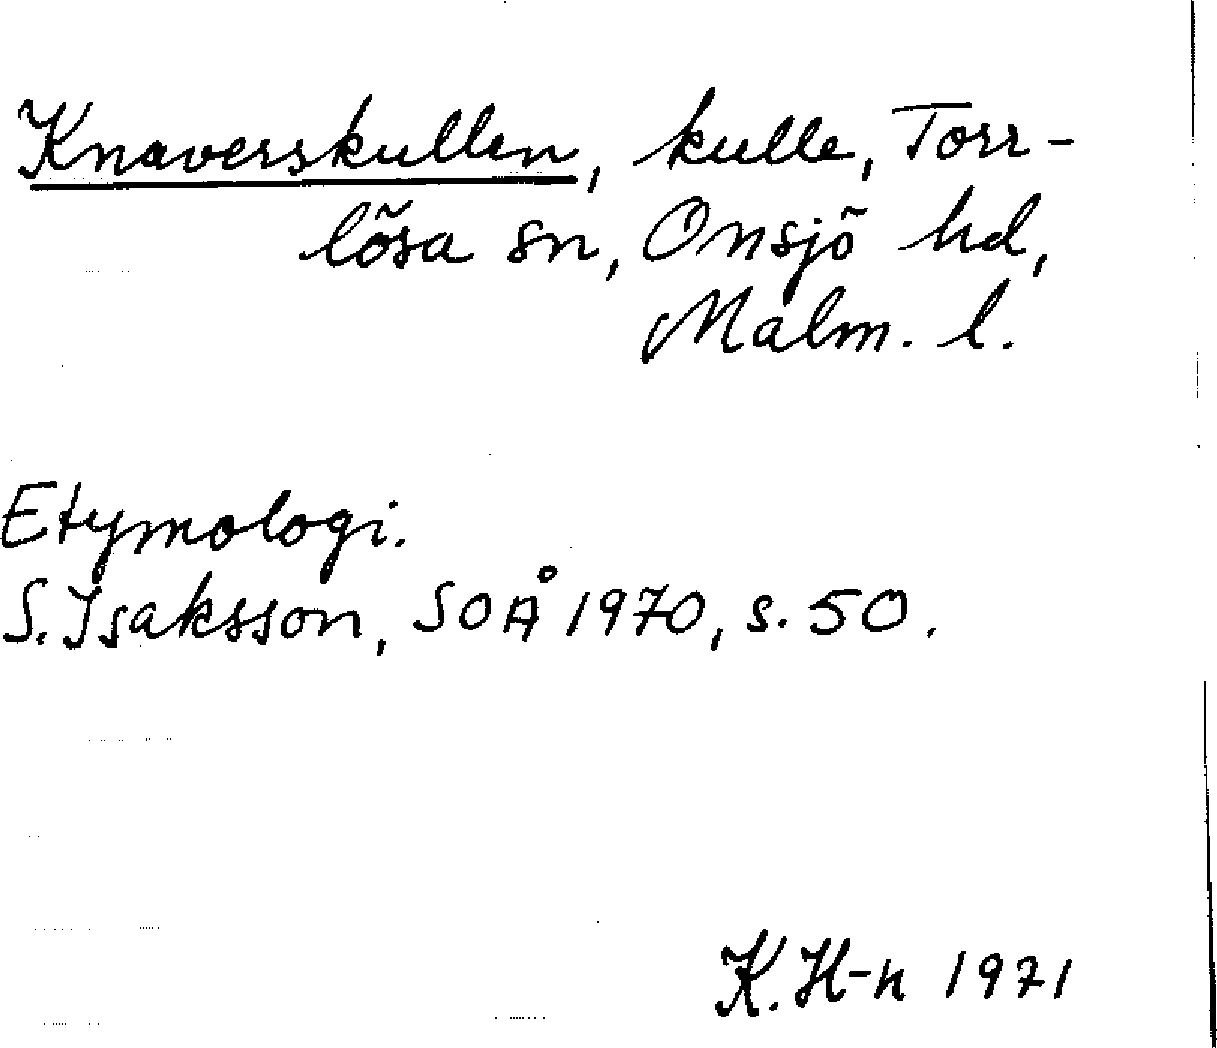 Knaverskullen, kulle, Torr-
lösa sn, Onsjö hd,
Malm. l.
Etymologi.
S. Isaksson, SOÅ 1970, s. 50.
K. H-n 1971